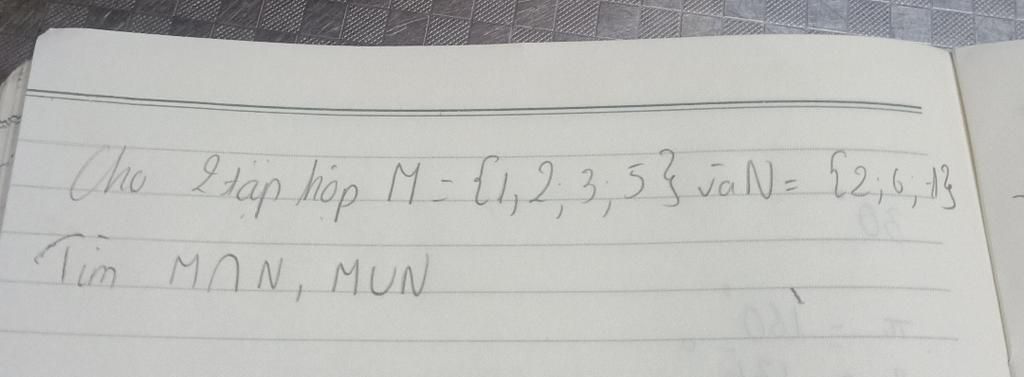 Cho 2 tập hợp M = {1, 2; 3, 5} và N = {2; 6, 1}
Tìm M∩N, M∪N